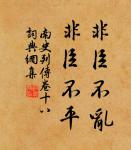 非臣不亂
非臣不平
南史列傳卷十八
詞典網集